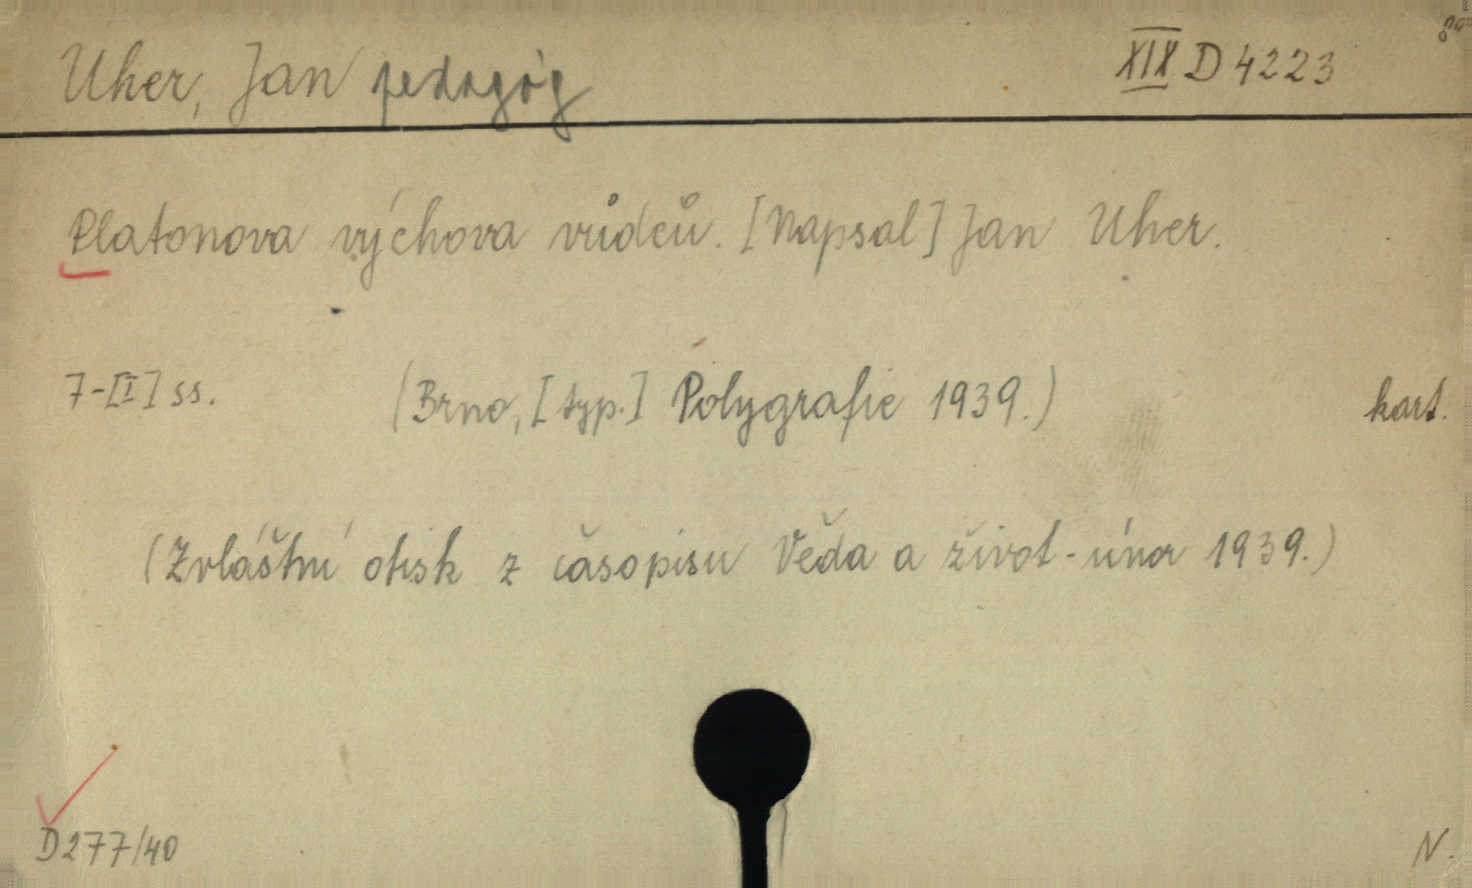 Uher, Jan pedagóg XIX D 4223 8°
Platonova výchova vůdců. [Napsal] Jan Uher.
7-[I] ss. (Brno, [typ.] Polygrafie 1939.) kart.
(Zvláštní otisk z časopisu Věda a život - únor 1939.)
D 277/40 N.